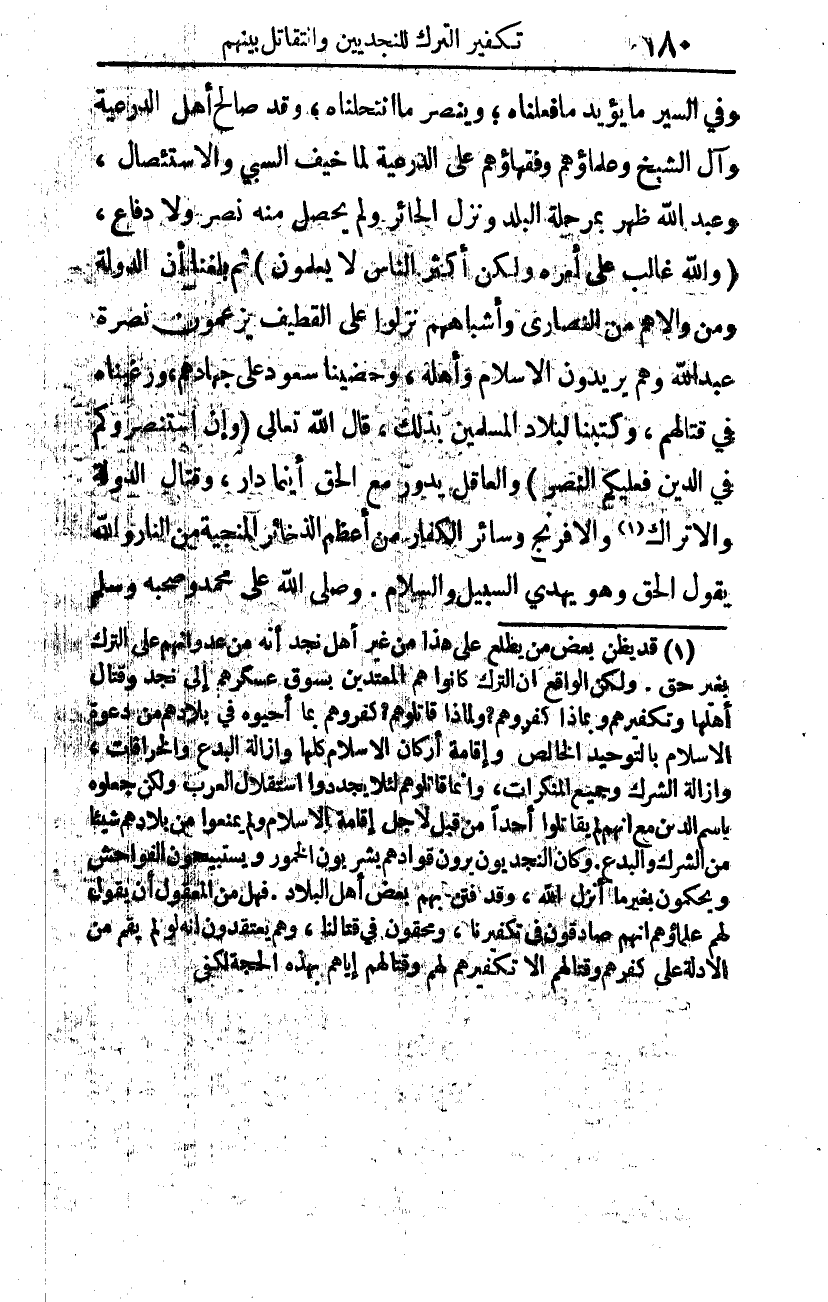 ١٨٠ تكفير الترك للنجديين وانتقاتل بينهم
وفي السير مايؤيد مافعلناه ؛ وينصر ماانتحلناه ؛ وقد صالح أهل الدرعية
وآل الشيخ وعلماؤهم وفقهاؤهم على الدرعية لما خيف السبي والاستئصال ،
وعبد الله ظهر بمرحلة البلد ونزل الحائر ولم يحصل منه نصر ولا دفاع ،
( والله غالب على أمره ولكن أكثر الناس لا يعلمون ) ثم بلغنا أن الدولة
ومن والاهم من النصارى وأشباههم نزلوا على القطيف يزعمون نصرة
عبدالله وهم يريدون الاسلام وأهله ، وحضينا سعود على جهادهم ، ورغبناه
في قتالهم ، وكتبنا لبلاد المسلمين بذلك ، قال الله تعالى ( وإن استنصروكم
في الدين فعليكم النصر ) والعاقل يدور مع الحق أينما دار ، وقتال الدولة
والاتراك (١) والافرنج وسائر الكفار من أعظم الذخائر المنجية من النار والله
يقول الحق وهو يهدي السبيل والسلام . وصلى الله على محمد وصحبه وسلم
(١) قد يظن بعض من يطلع على هذا من غير أهل نجد أنه من عدوانهم على الترك
بغير حق . ولكن الواقع ان الترك كانوا هم المعتدين بسوق عسكرهم إلى نجد وقتال
أهلها وتكفيرهم وبماذا كفروهم؟ ولماذا قاتلوهم؟ كفروهم بما أحيوه في بلادهم من دعوة
الاسلام بالتوحيد الخالص وإقامة أركان الاسلام كلها وازالة البدع والخرافات ،
وازالة الشرك وجميع المنكرات ، وانما قاتلوهم لئلا يجددوا استقلال العرب ولكن جعلوه
باسم الدين مع انهم لم يقاتلوا أحداً من قبل لاجل إقامة الاسلام ولم يمنعوا من بلادهم شيئا
من الشرك والبدع . وكان النجديون يرون قوادهم يشربون الخمور ويستبيحون الفواحش
ويحكون بغير ما أنزل الله ، وقد فتن بهم بعض أهل البلاد . فهل من المعقول أن يقول
لهم علماؤهم انهم صادقون في تكفيرنا ، ومحقون في قتالنا ، وهم يعتقدون انه لو لم يقم من
الادلة على كفرهم وقتالهم الا تكفيرهم لهم وقتالهم إياهم بهذه الحجة لكفى